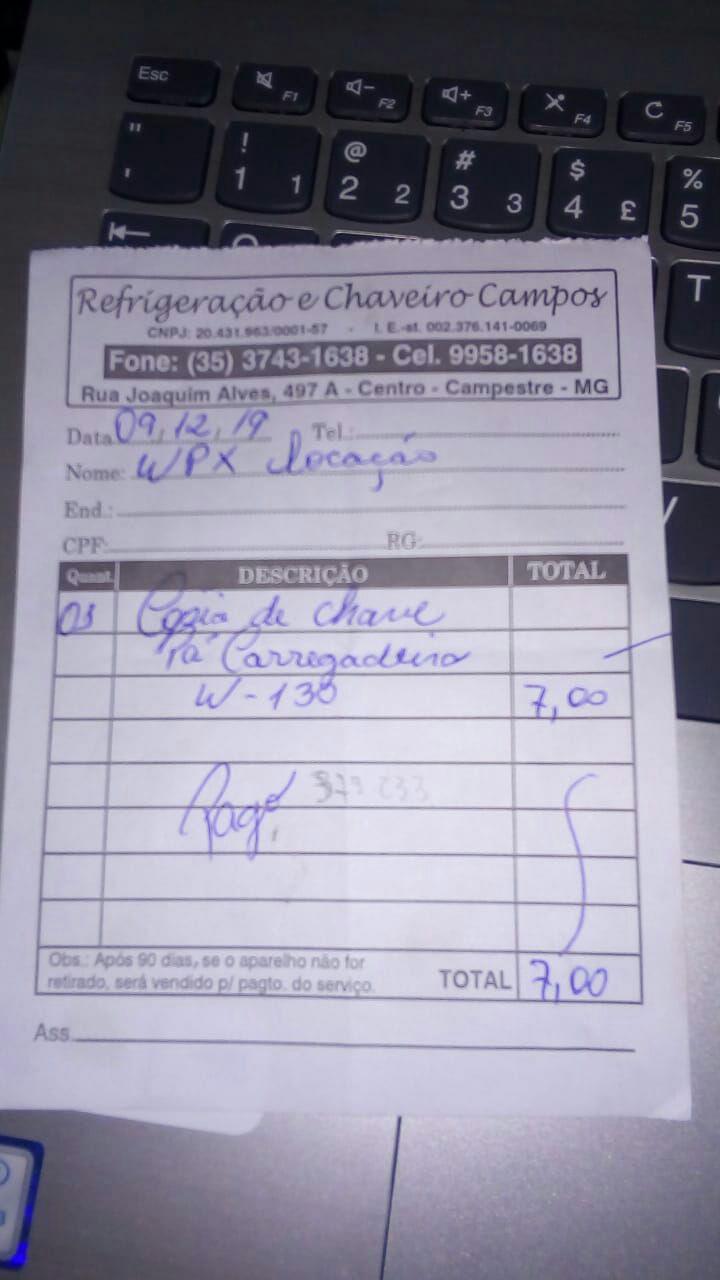 Esc F1 F2 F3 F4 F5
" ! @ # $ %
' 1 1 2 2 3 3 4 £ 5
T
Refrigeração e Chaveiro Campos
CNPJ: 20.431.963/0001-57 - I. E.-st. 002.376.141-0069
Fone: (35) 3743-1638 - Cel. 9958-1638
Rua Joaquim Alves, 497 A - Centro - Campestre - MG
Data 09,12,19 Tel.:
Nome: WPX Locação
End.:
CPF: RG:
Quant. DESCRIÇÃO TOTAL
01 Copia de chave
Pá Carregadeira
W-130 7,00
Pago
Obs.: Após 90 dias, se o aparelho não for
retirado, será vendido p/ pagto. do serviço. TOTAL 7,00
Ass.